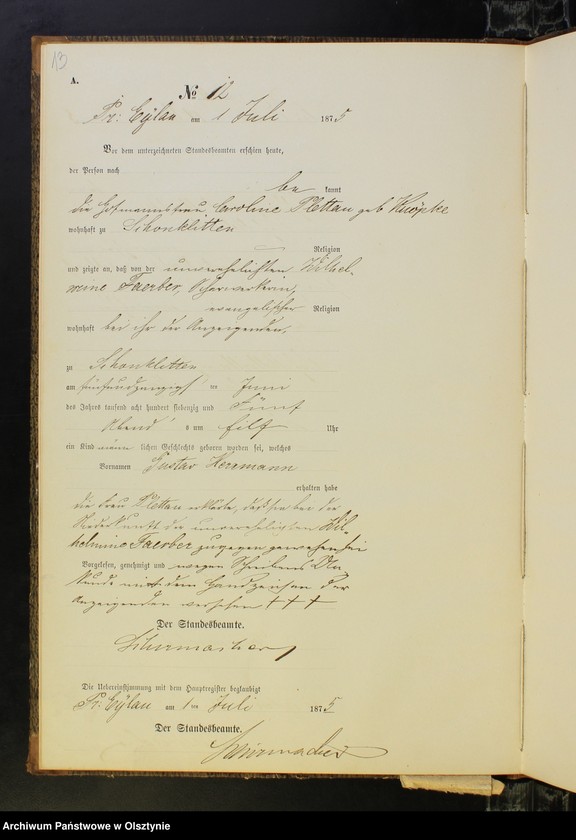 13
A.
№ 12
Pr: Eylau am 1 Juli 1875
Vor dem unterzeichneten Standesbeamten erschien heute,
der Person nach
be kannt
die Hofmannsfrau Caroline Plettau geb Knöpke
wohnhaft zu Schonklitten
Religion
und zeigte an, daß von der unverehelichten Wilhel-
mine Faerber, Scharwerkerin,
evangelischer Religion
wohnhaft bei ihr der Anzeigenden,
zu Schonklitten
am fünfundzwanzigst ten Juni
des Jahres tausend acht hundert siebenzig und Fünf
Abend s um Eilf Uhr
ein Kind männ lichen Geschlechts geboren worden sei, welches
Vornamen Gustav Herrmann
erhalten habe
die Frau Plettau erklärte, daß sie bei der
Niederkunft der unverehelichten Wil-
helmine Faerber zugegen gewesen sei
Vorgelesen, genehmigt und wegen Schreibens Un-
kunde mit dem Handzeichen der
Anzeigenden versehen +++
Der Standesbeamte.
Schirrmacher
Die Uebereinstimmung mit dem Hauptregister beglaubigt
Pr: Eylau am 1ten Juli 1875
Der Standesbeamte.
Schirrmacher
Archiwum Państwowe w Olsztynie